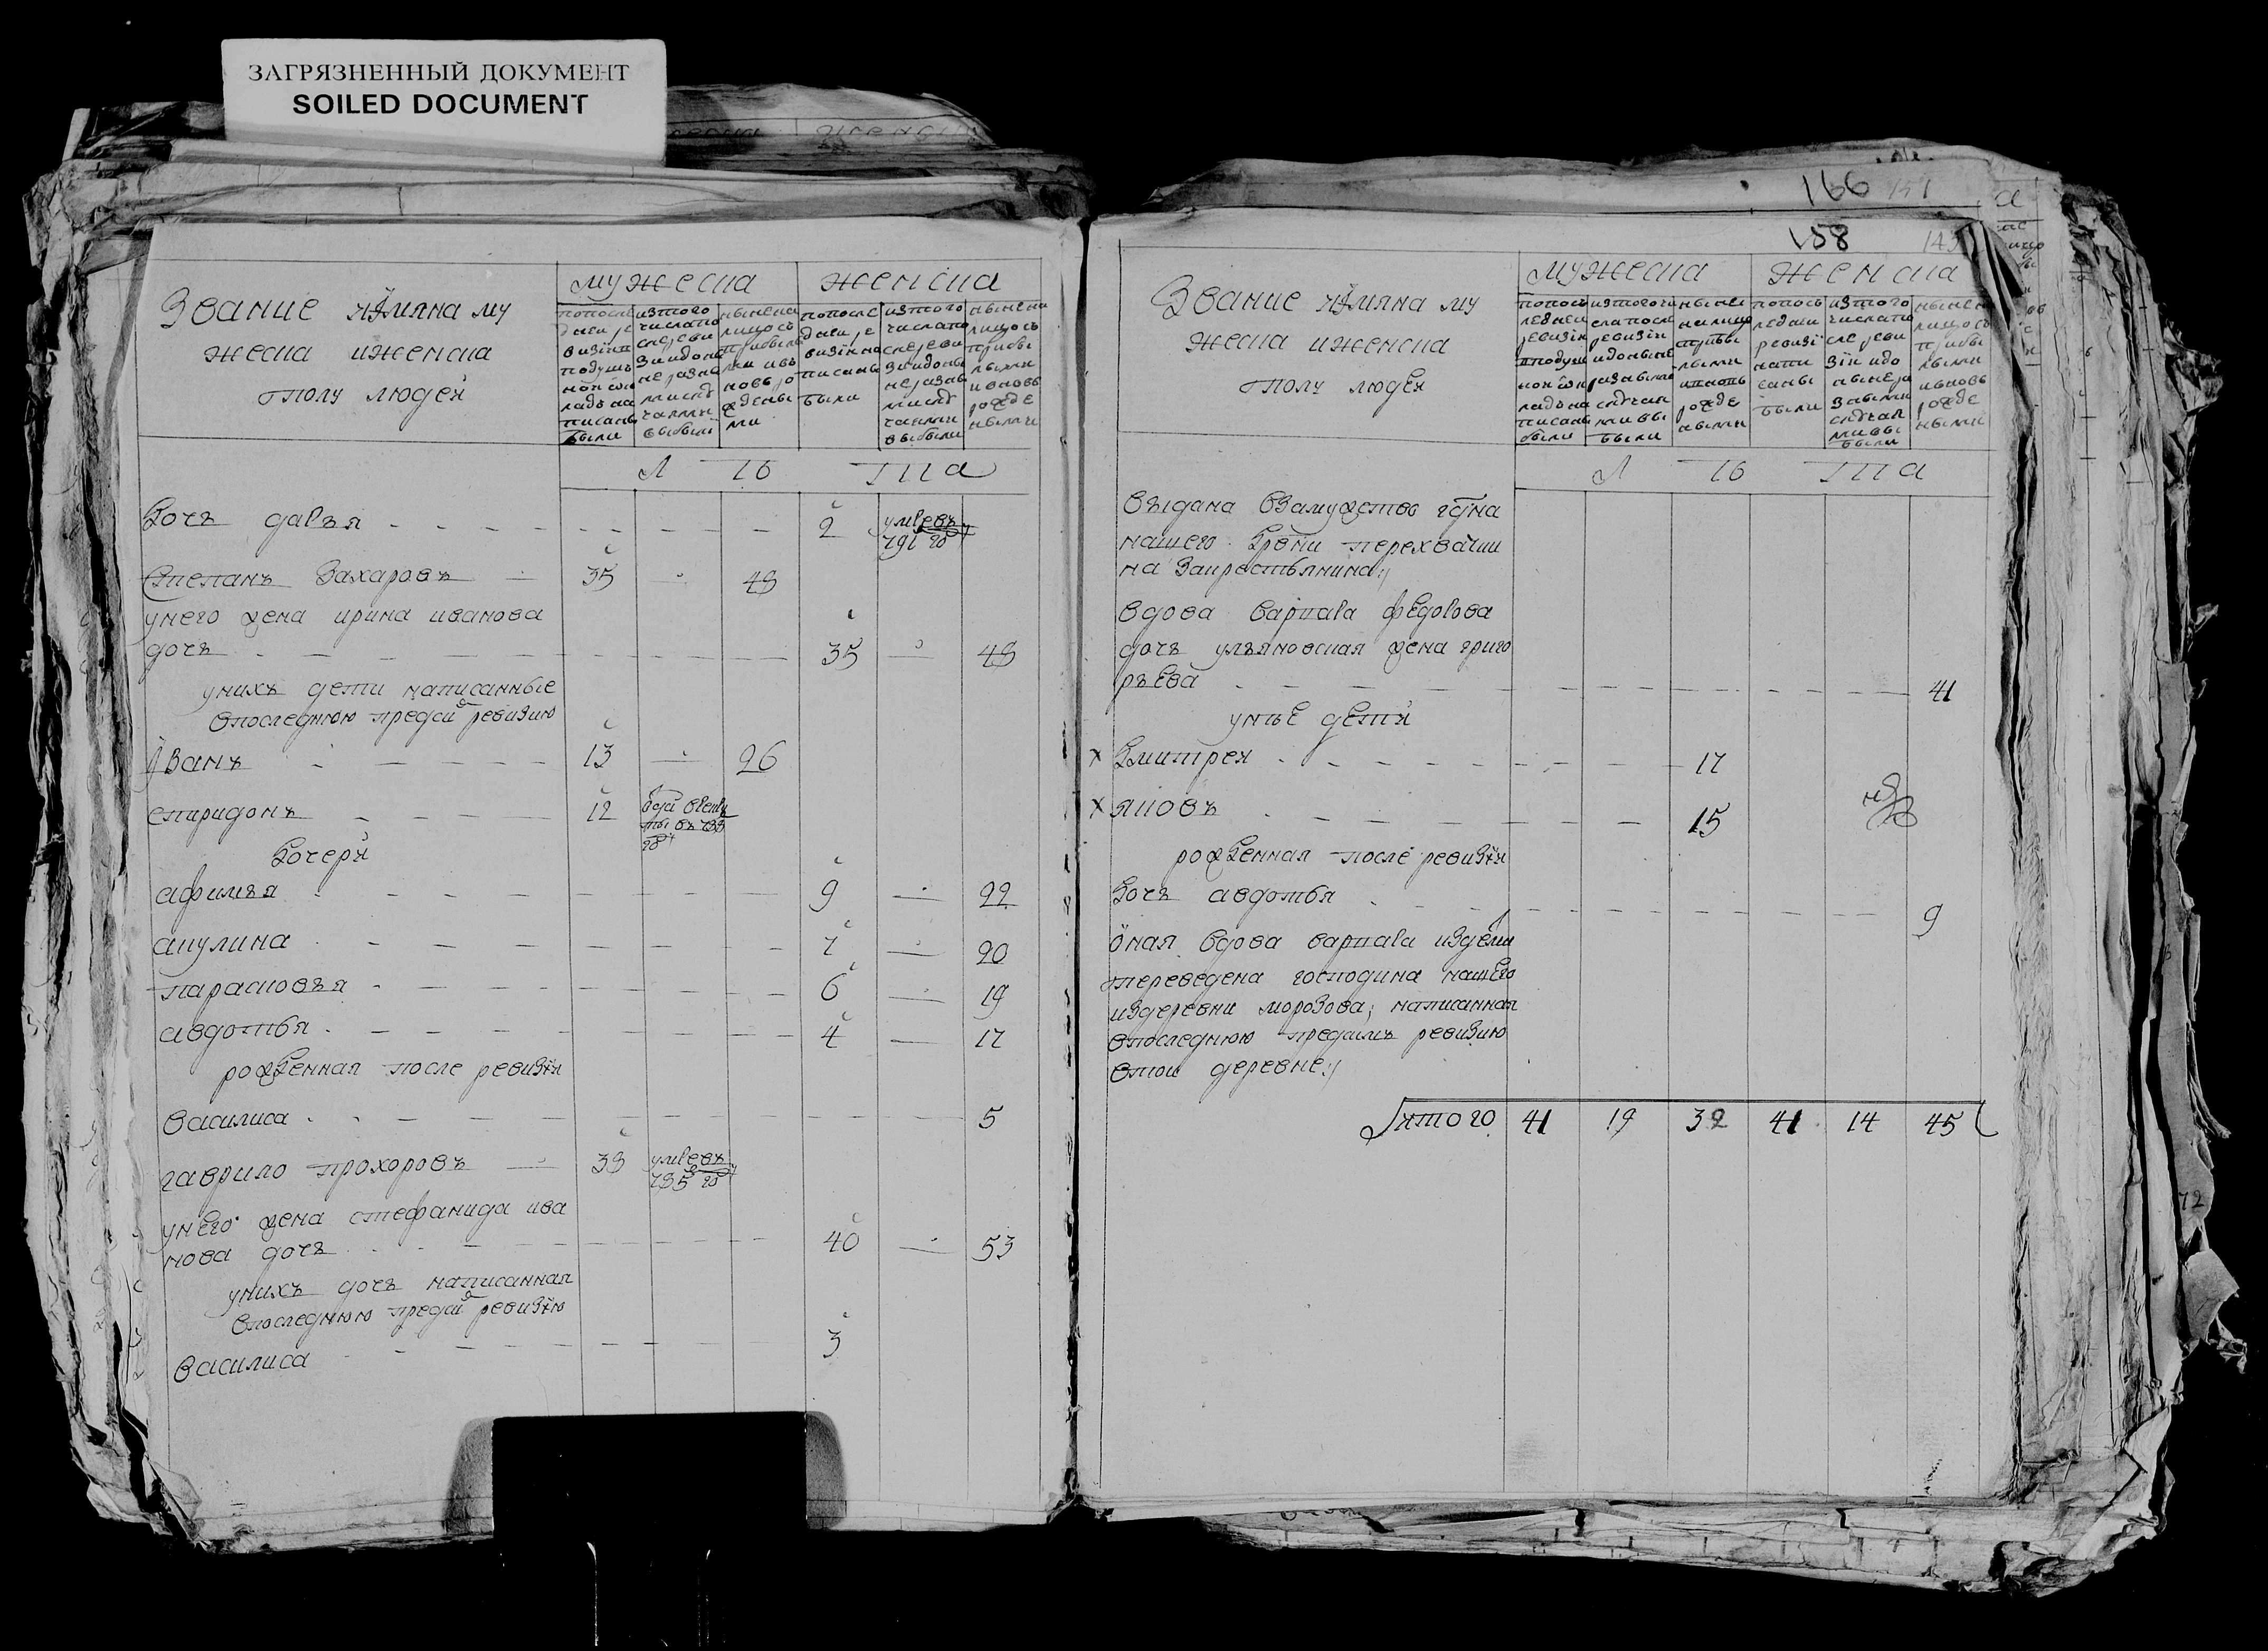 ЗАГРЯЗНЕННЫЙ ДОКУМЕНТ
SOILED DOCUMENT
Звание иимяна му
жеска иженска
полу людей
мужеска
женска
попосле
дней ре
визіи в
подушъ
ной ок
ладъ на
писаны
были
изтого
числа по
сле реви
зіи до
не разны
ми слу
чаями
выбыли
ныне на
лицо съ
прибыл
ми и въ
новь ро
жденны
ми
попосле
дней ре
визіи на
писаны
были
изтого
числа по
сле реви
зіи до ны
не разны
ми слу
чаями
выбыли
ныне на
лицо съ
прибы
лыми
и вновь
рожде
ными
Л ѣ та
дочь дарья 2 умре въ
791 го
степанъ захаровъ 35 48
унего жена ирина иванова
дочь 35 48
унихъ дети написанные
впоследнюю пред сим ревизию
иванъ 13 26
спиридонъ 12 въ 788
го
дочери
афимья 9 22
акулина 7 20
парасковья 6 19
авдотья 4 17
рожденная после ревизіи
василиса 5
гаврило прохоровъ 38 умре въ
785 го
унего жена стефанида ива
нова дочь 40 53
унихъ дочь написанная
впоследнюю пред сим ревизію
василиса 3
166
158
Звание иимяна му
жеска иженска
полу людей
мужеска
женска
попось
ледней
ревизіи
вподуш
ной ок
ладъ на
писаны
были
изтого чи
сла после
ревизіи
и до ныне
разными
случая
ми вы
были
ныне
на лицо
прибы
лыми
и вновь
рожде
ными
попось
ледней
ревизі
напи
саны
были
изтого
числа по
сле реви
зіи и до
ныне ра
зными
случая
ми вы
были
ныне на
лицо съ
прибы
лыми
и вновь
рожде
ными
Л ѣ та
выдана взамужство
нашего
на закрестьянина
вдова варвара федорова
дочь ульяновская жена григо
рьева 41
унее дети
х дмитрей 17
х яковъ 15
рожденная после ревизіи
дочь авдотья 9
оная вдова варвара издетми
переведена господина нашего
издеревни морозова; написанная
впоследнюю предсимъ ревизию
втой деревне
итого 41 19 32 41 14 45